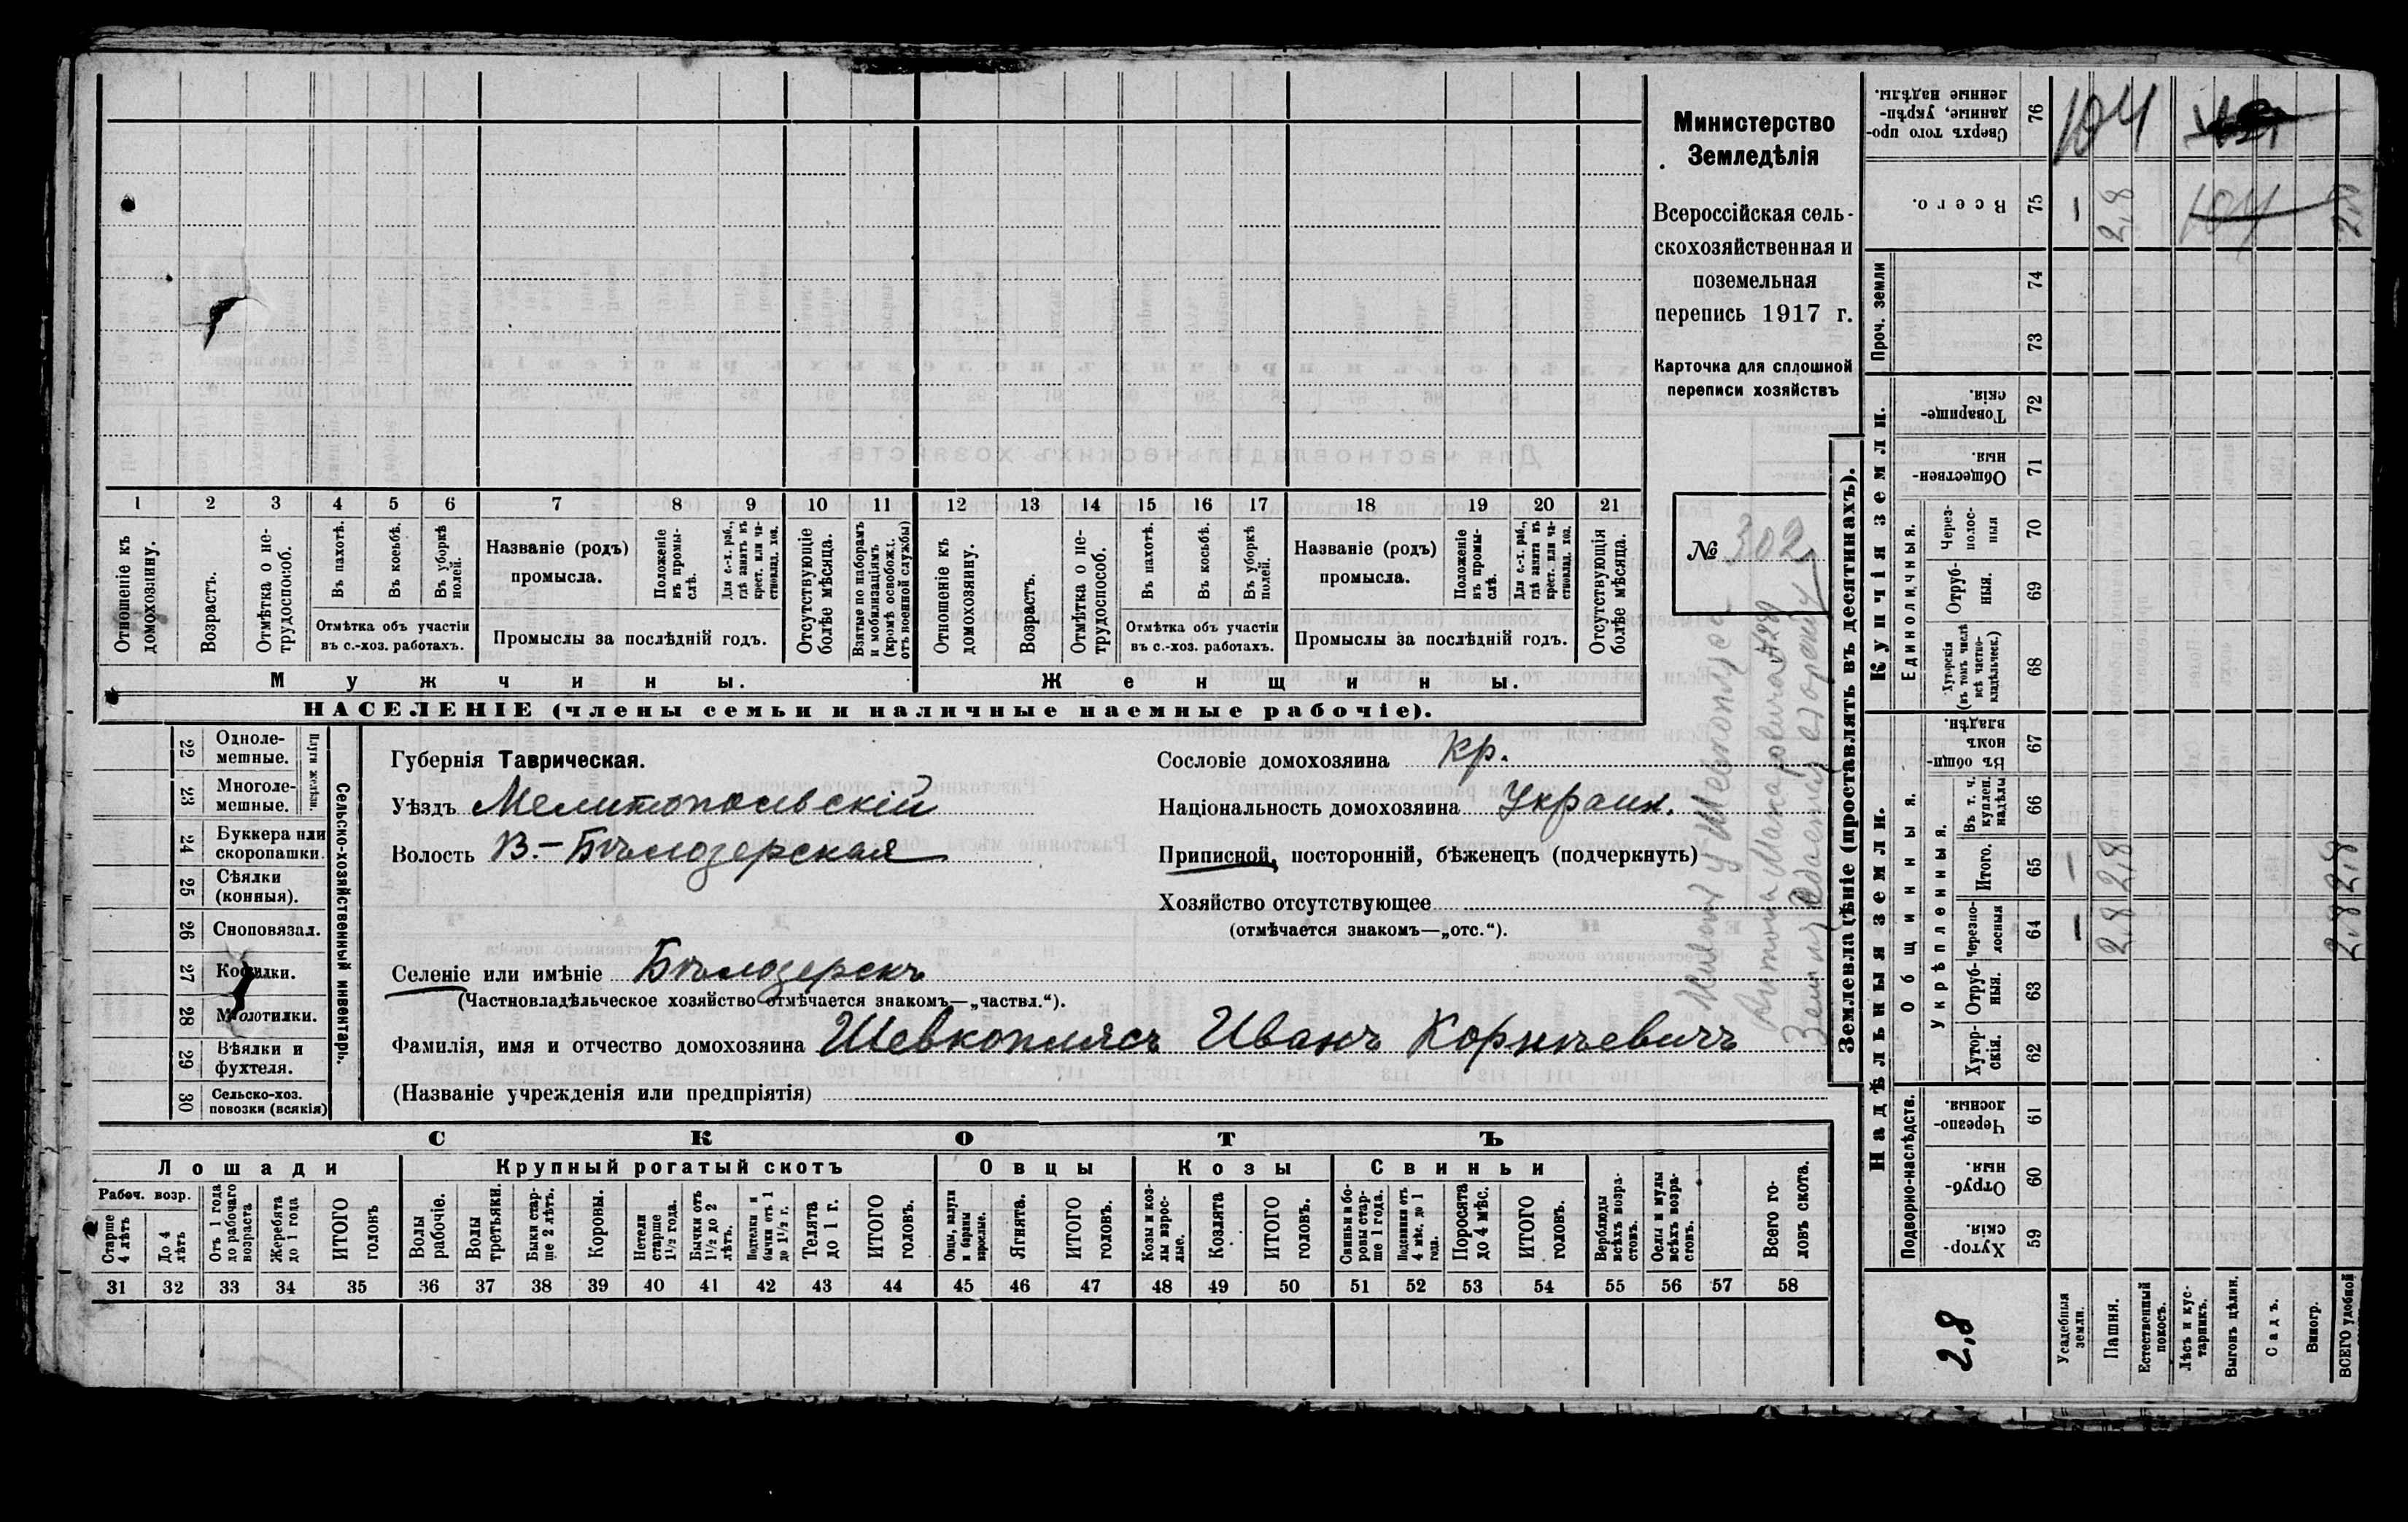 Министерство
Земледѣлія
Всероссійская сель-
скохозяйственная и
поземельная
перепись 1917 г.
Карточка для сплошной
переписи хозяйствъ
№ 302
1 2 3 4 5 6 7 8 9 10 11 12 13 14 15 16 17 18 19 20 21
Отношеніе къ домохозяину.
Возрастъ.
Отмѣтка о не-трудоспособ.
Въ пахотѣ.
Въ косьбѣ.
Въ уборкѣ полей.
Отмѣтка объ участіи въ с.-хоз. работахъ.
Названіе (родъ) промысла.
Положеніе въ промы-слѣ.
Для с.-х. раб., гдѣ занятъ въ крест. или ча-стновлад. хоз.
Промыслы за послѣдній годъ.
Отсутствующіе болѣе мѣсяца.
Взятые по наборамъ и мобилизаціямъ (кромѣ освобожд. отъ военной службы)
Отношеніе къ домохозяину.
Возрастъ.
Отмѣтка о не-трудоспособ.
Въ пахотѣ.
Въ косьбѣ.
Въ уборкѣ полей.
Отмѣтка объ участіи въ с.-хоз. работахъ.
Названіе (родъ) промысла.
Положеніе въ промы-слѣ.
Для с.-х. раб., гдѣ занята въ крест. или ча-стновлад. хоз.
Промыслы за послѣдній годъ.
Отсутствующія болѣе мѣсяца.
Мужчины.
Женщины.
НАСЕЛЕНІЕ (члены семьи и наличные наемные рабочіе).
22 Одноле-мешные.
23 Многоле-мешные.
Плуги желѣзн.
24 Буккера или скоропашки.
25 Сѣялки (конныя).
26 Сноповязал.
27 Косилки.
28 Молотилки.
29 Вѣялки и фухтеля.
30 Сельско-хоз. повозки (всякія)
Сельско-хозяйственный инвентарь.
Губернія Таврическая.
Уѣздъ Мелитопольскій
Волость В.-Бѣлозерская
Сословіе домохозяина кр.
Національность домохозяина Украин.
Приписной, посторонній, бѣженецъ (подчеркнуть)
Хозяйство отсутствующее
(отмѣчается знакомъ—„отс.“).
Селеніе или имѣніе Бѣлозерскъ
(Частновладѣльческое хозяйство отмѣчается знакомъ—„частвл.“).
Фамилія, имя и отчество домохозяина Шевкоплясъ Иванъ Корнѣевичъ
(Названіе учрежденія или предпріятія)
СКОТЪ
Лошади
Крупный рогатый скотъ
Овцы
Козы
Свиньи
Рабоч. возр.
Старше 4 лѣтъ
До 4 лѣтъ
Отъ 1 года до рабочаго возраста
Жеребята до 1 года
ИТОГО головъ
Волы рабочіе.
Волы третьяки.
Быки стар-ше 2 лѣтъ.
Коровы.
Нетели старше 1½ года.
Бычки отъ 1½ до 2 лѣтъ.
Подтелки и бычки отъ 1 до 1½ г.
Телята до 1 г.
ИТОГО головъ.
Овцы, валухи и бараны взрослые.
Ягнята.
ИТОГО головъ.
Козы и коз-лы взрос-лые.
Козлята
ИТОГО головъ.
Свиньи и бо-ровы стар-ше 1 года.
Подсвинки отъ 4 мѣс. до 1 года.
Поросята до 4 мѣс.
ИТОГО головъ.
Верблюды всѣхъ возра-стовъ.
Ослы и мулы всѣхъ возра-стовъ.
Всего го-ловъ скота.
31 32 33 34 35 36 37 38 39 40 41 42 43 44 45 46 47 48 49 50 51 52 53 54 55 56 57 58
Землевладѣніе (проставлять въ десятинахъ).
Надѣльныя земли.
Купчія земли.
Проч. земли
Подворно-наслѣдств.
Общинныя.
Укрѣпленныя.
Единоличныя.
Сверхъ того про-данные, укрѣп-ленные надѣлы. 76 104
Всего. 75 — 2,8 104 2,8
74
73
Товарище-скія. 72
Обществен-ныя. 71
Через-полос-ныя 70
Отруб-ныя. 69
Хуторскія (въ томъ числѣ всѣ частно-владѣльческ.) 68
Въ общи-номъ владѣн. 67
Въ т. ч. куплен. надѣлы 66
Итого. 65 — 2,8 2,8
Черезпо-лосныя 64 — 2,8 2,8
Отруб-ныя. 63
Хутор-скія. 62
Черезпо-лосныя. 61
Отруб-ныя. 60
Хутор-скія. 59
2,8
Усадебныя земли.
Пашня.
Естественный покосъ.
Лѣсъ и кус-тарникъ.
Выгонъ цѣлин.
Садъ.
Виногр.
ВСЕГО удобной